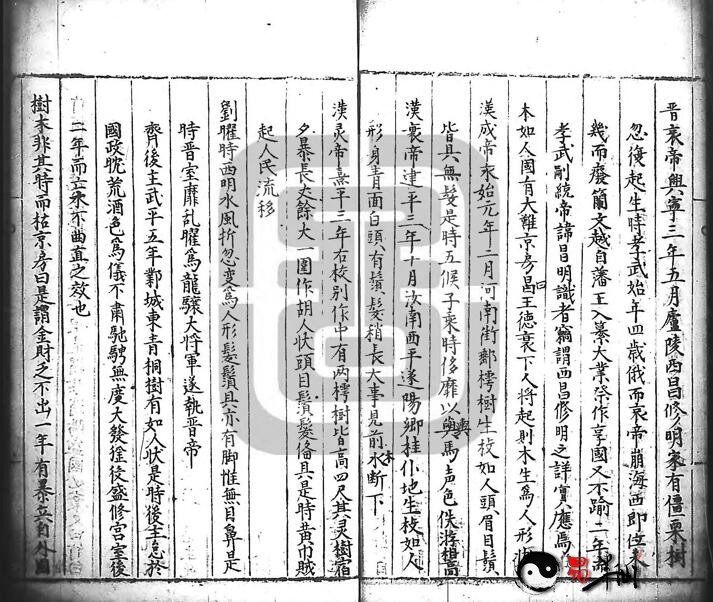 晋哀帝興寧三年五月廬陵西昌修明家有僵栗樹
忽復起生時孝武始年四歲俄而哀帝崩海西即位未
幾而廢簡文越自藩王入纂大業祭作享國又不踰二年而
孝武剛統帝諱昌明識者竊謂西昌修明之詳實應焉
木如人國有大難京房昌曰王德衰下人將起則木生為人形狀
漢成帝永始元年二月河南街郵樗樹生枝如人頭眉目鬚
皆具無髮是時五候子乘時侈靡以輿馬声色佚游相高
漢哀帝建平三年十月汝南西平遂陽鄉柱仆地生枝如人
形身青面白頭有鬚髮稍長大事見前木水斷下
漢灵帝熹平三年右校別作中有两樗樹皆高四尺其灵樹宿
夕暴長丈餘大一圍作胡人状頭目鬚髮俻具是時黄巾賊
起人民流移
劉曜時西明水風折忽变為人形髮鬚具亦有脚惟無目鼻是
時晋室靡乱曜為龍驤大將軍遂執晋帝
齊後主武平五年鄴城東青桐樹有如人状是時後主怠於
國政眈荒酒色為儀不肅馳騁無度大發徭後盛修宮室後
二年而亡木不曲直之效也
樹木非其時而枯京房曰是謂金財之不出一年有暴兵自外國